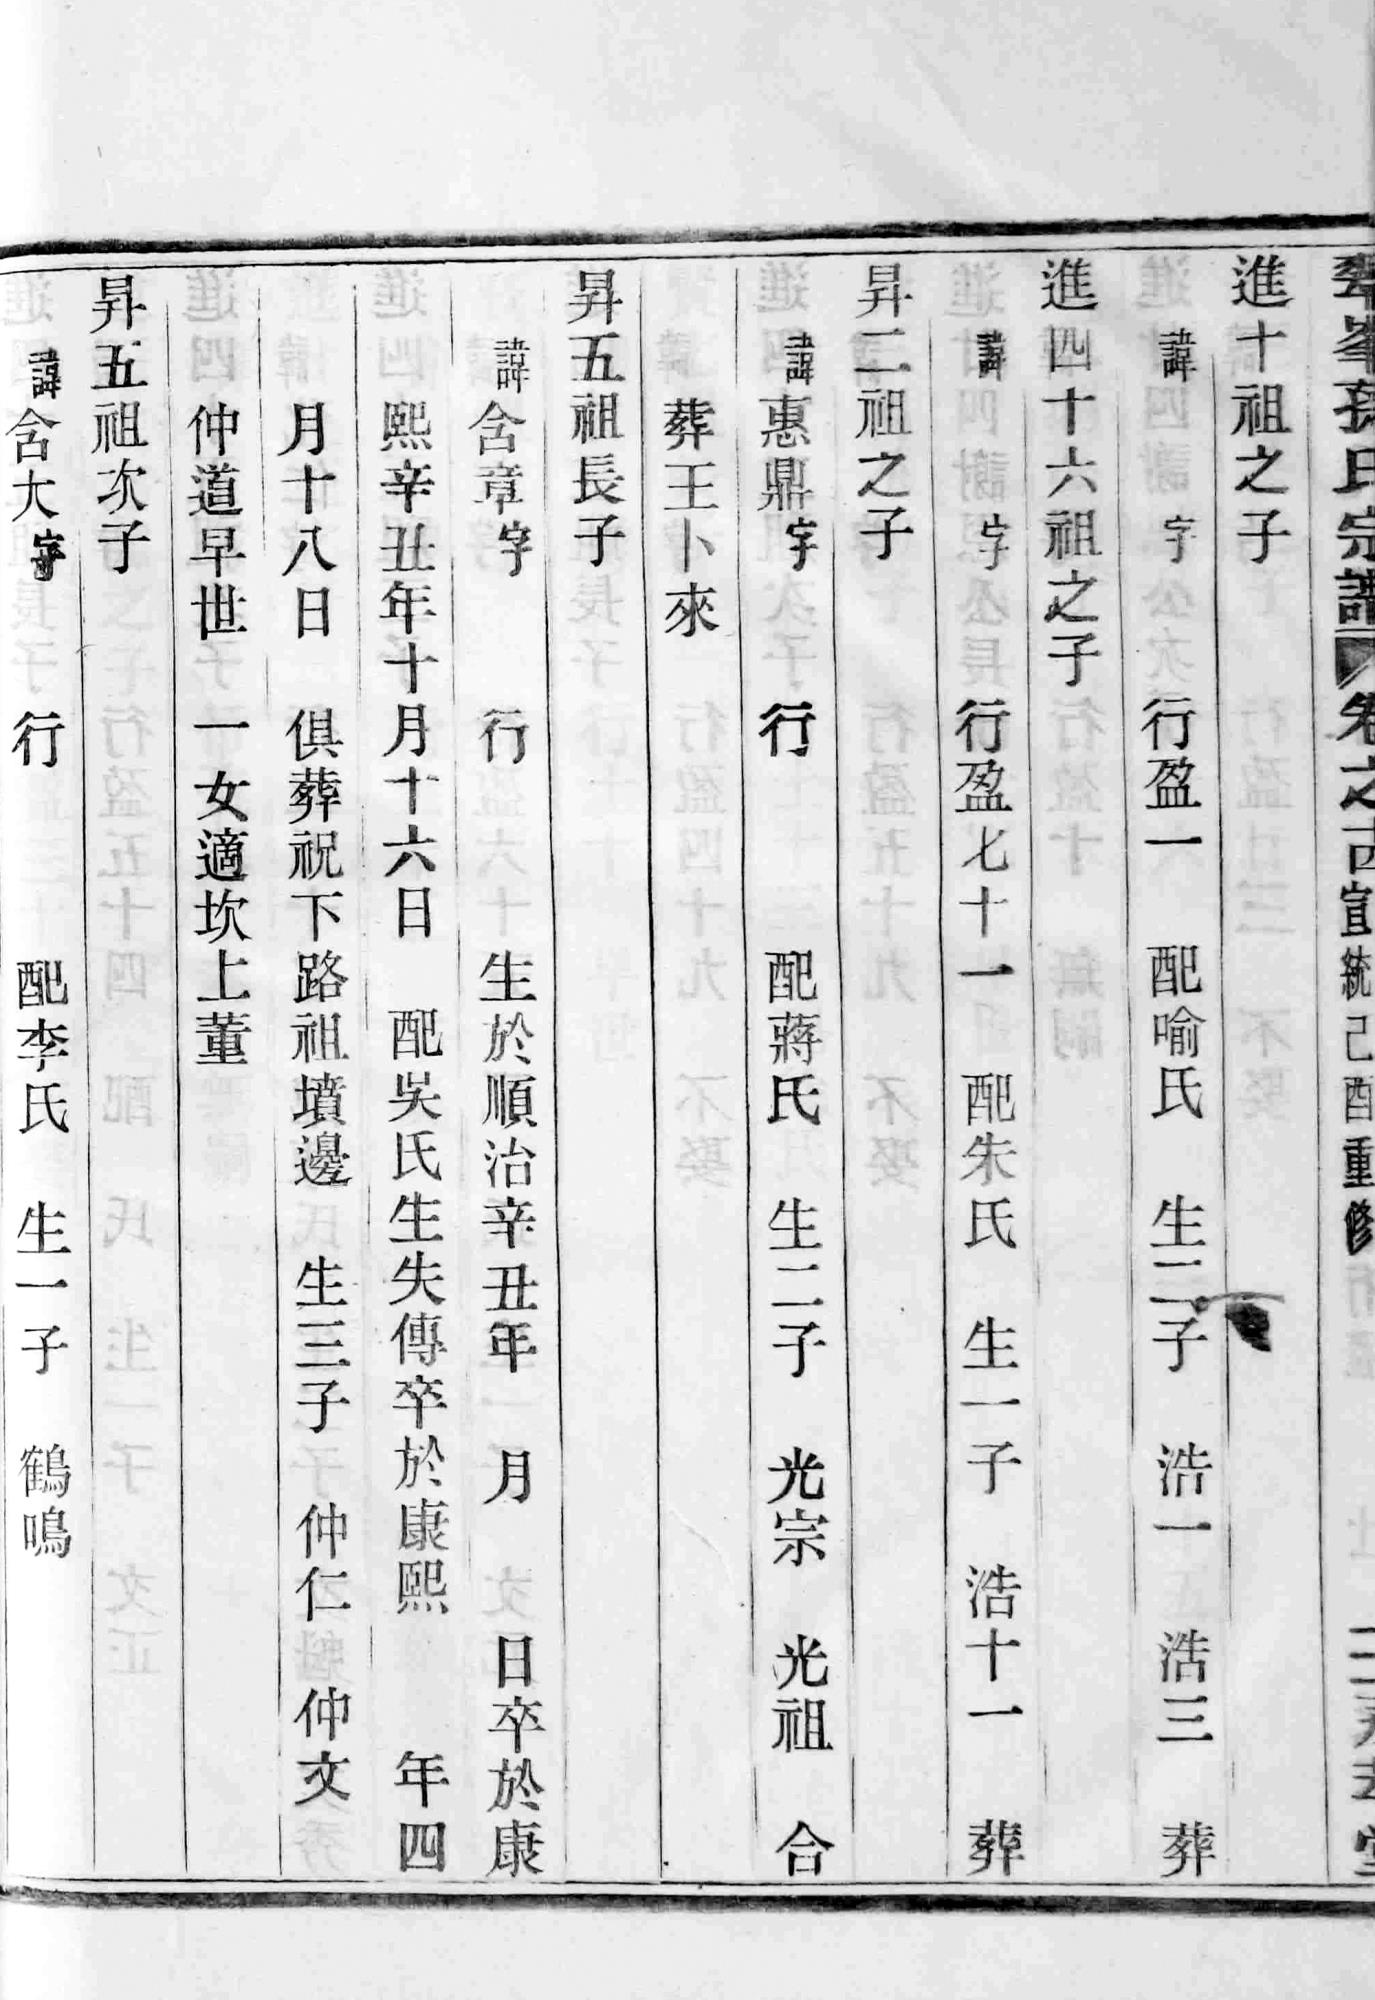 峯孫氏宗譜 卷之 宣統己酉重修 堂
進十祖之子
諱 字 行盈一 配喻氏 生二子 浩一 浩三 葬
進四十六祖之子
諱 字 行盈七十一 配朱氏 生一子 浩十一 葬
昇二祖之子
諱惠鼎字 行 配蔣氏 生二子 光宗 光祖 合
葬王卜來
昇五祖長子
諱含章字 行 生於順治辛丑年 月 日卒於康
熙辛丑年十月十六日 配吳氏生失傳卒於康熙 年四
月十八日 俱葬祝下路祖墳邊 生三子 仲仁 仲文
仲道早世 一女適坎上董
昇五祖次子
諱含大字 行 配李氏 生一子 鶴鳴